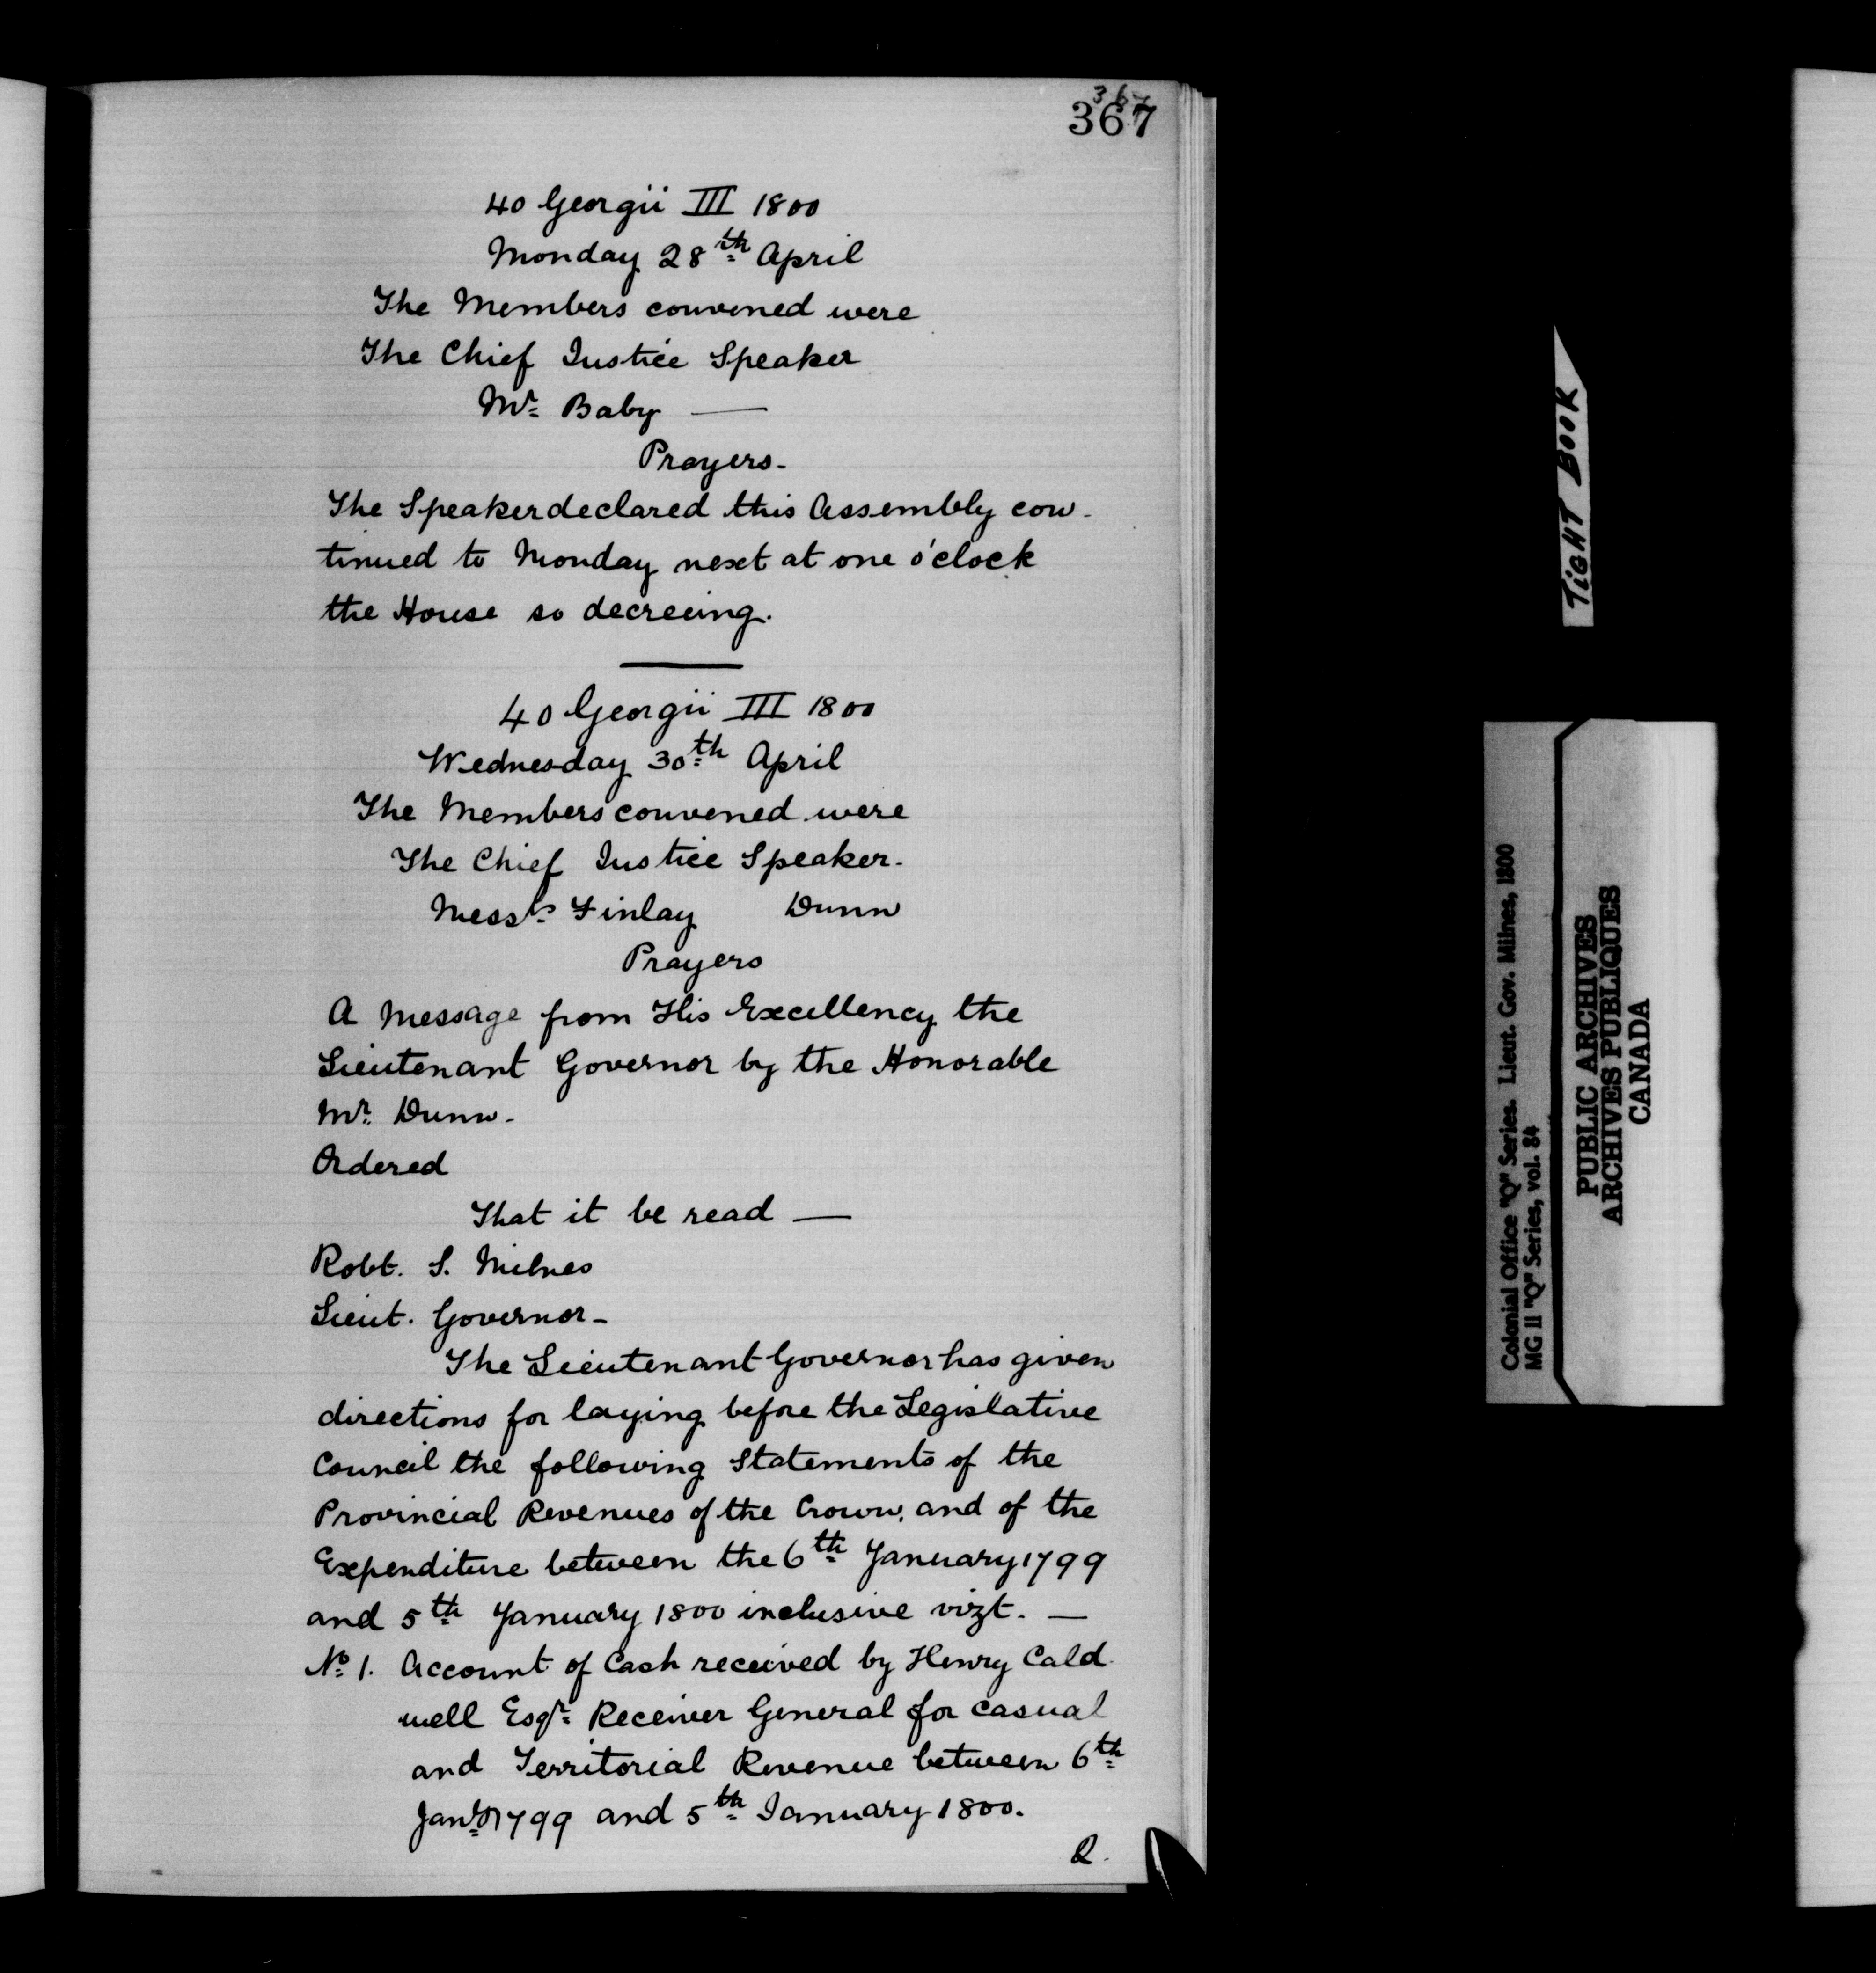 367
367
40 Georgii III 1800
Monday 28th April
The Members convened were
The Chief Justice Speaker
Mr Baby —
Prayers-
The Speaker declared this Assembly con-
tinued to Monday next at one o'clock
the House so decreeing.
40 Georgii III 1800
Wednesday 30th April
The Members convened were
The Chief Justice Speaker-
Messrs Finlay Dunn
Prayers
A Message from His Excellency the
Lieutenant Governor by the Honorable
Mr Dunn-
Ordered
That it be read —
Robt. S. Milnes
Lieut. Governor-
The Lieutenant Governor has given
directions for laying before the Legislative
Council the following Statements of the
Provincial Revenues of the Crown, and of the
Expenditure between the 6th January 1799
and 5th January 1800 inclusive vizt. —
No 1. Account of Cash received by Henry Cald-
well Esqr Receiver General for casual
and Territorial Revenue between 6th
Jany 1799 and 5th January 1800.
2.
TiGHT BOOK
Colonial Office "Q" Series. Lieut. Gov. Milnes, 1800
MG 11 "Q" Series, vol. 84
PUBLIC ARCHIVES
ARCHIVES PUBLIQUES
CANADA